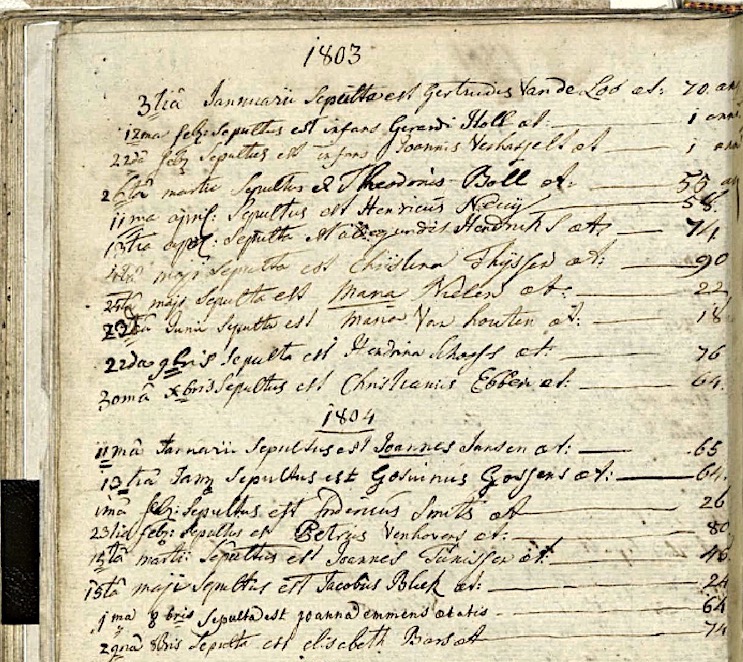 1803
3tiâ Januarii Sepulta est Gertrudis Van de Loo æt: 70. an
12ma feb: Sepultus est infans Gerardi Holl æt: 1 anni
22dâ feb Sepultus est infans Joannis Verhasselt æt 1 anni
26tâ martii Sepultus Theodorus Boll æt: 55 an
11ma april: Sepultus est Henricus 58
13tia april: Sepulta est Hendriks æt: 74
maji Sepulta est Christina Thijssen æt: 90
maji Sepulta est Maria Nielen æt: 22
Junii Sepulta est Maria Van houten æt: 18
22da 9bris Sepulta est Hendrina Schoofs æt: 76
30mâ xbris Sepultus est Christianus Ebben æt: 64
1804
11mâ Januarii Sepultus est Joannes Jansen æt: 65
13tia Jany Sepultus est Gosuinus Gossens æt: 64
1mâ feb: Sepultus est Smits æt 26
23tia feb: Sepultus est Petrus Venhovens æt: 80
15tâ martii Sepultus est Joannes Tunissen æt: 46
15tâ maji Sepultus est Jacobus Bliek æt: 24
1ma 8bris Sepulta est joanna emmens ætatis 64
8bris Sepulta est elisabeth Bars æt 74